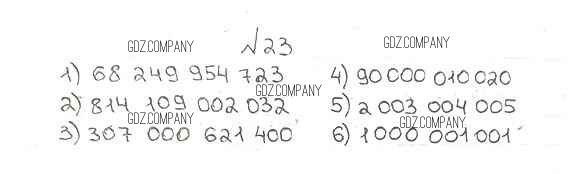 GDZ.COMPANY
GDZ.COMPANY
№23
1) 68 249 954 723
4) 90 000 010 020
GDZ.COMPANY
2) 814 109 002 032
5) 2 003 004 005
GDZ.COMPANY
GDZ.COMPANY
3) 307 000 621 400
6) 1 000 001 001